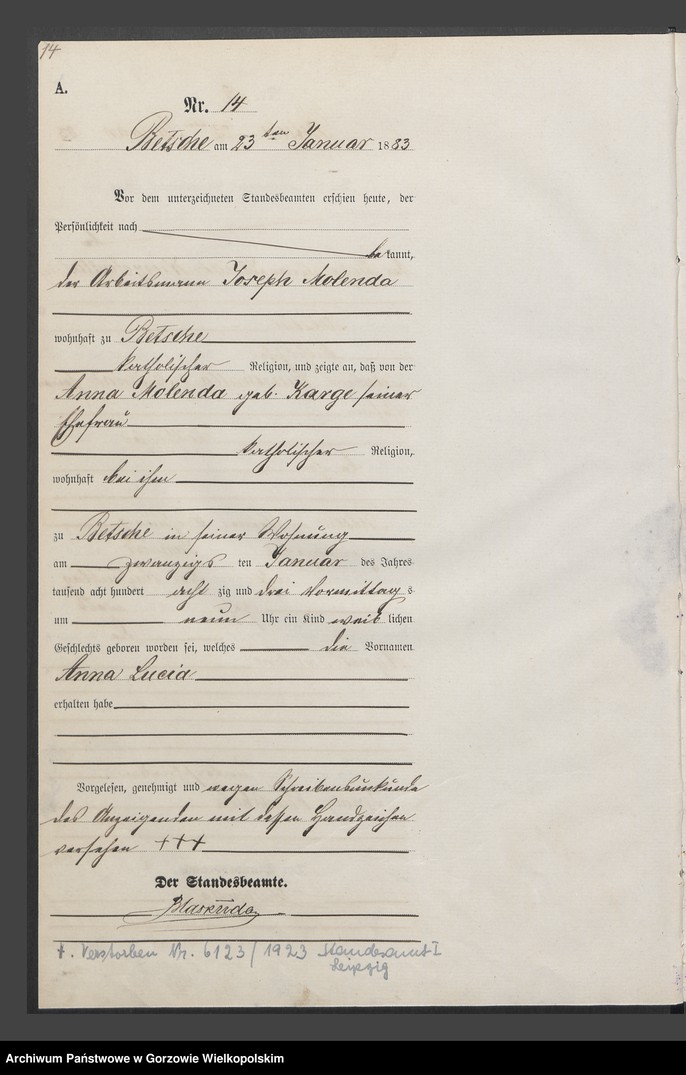 14
A.
Nr. 14
Betsche am 23ten Januar 1883
Vor dem unterzeichneten Standesbeamten erschien heute, der
Persönlichkeit nach
bekannt,
der Arbeitsmann Joseph Molenda
wohnhaft zu Betsche
katholischer Religion, und zeigte an, daß von der
Anna Molenda geb. Karge seiner
Ehefrau
katholischer Religion,
wohnhaft bei ihm
zu Betsche in seiner Wohnung
am zwanzigsten Januar des Jahres
tausend acht hundert acht zig und drei Vormittags
um neun Uhr ein Kind weiblichen
Geschlechts geboren worden sei, welches die Vornamen
Anna Lucia
erhalten habe
Vorgelesen, genehmigt und wegen Schreibensunkunde
des Anzeigenden mit dessen Handzeichen
versehen +++
Der Standesbeamte.
+. Verstorben Nr. 6123/1923 Standesamt I
Leipzig
Archiwum Państwowe w Gorzowie Wielkopolskim